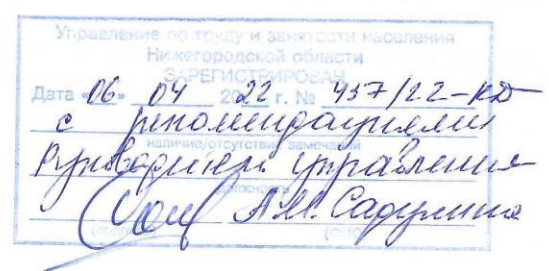 Управление по труду и занятости населения
Нижегородской области
ЗАРЕГИСТРИРОВАН
Дата «06» 04 2022 г. № 437/22-КД
с рекомендациями
наличие/отсутствие замечаний
Руководитель управления
должность
А.М. Садулина
(подпись) (ФИО)